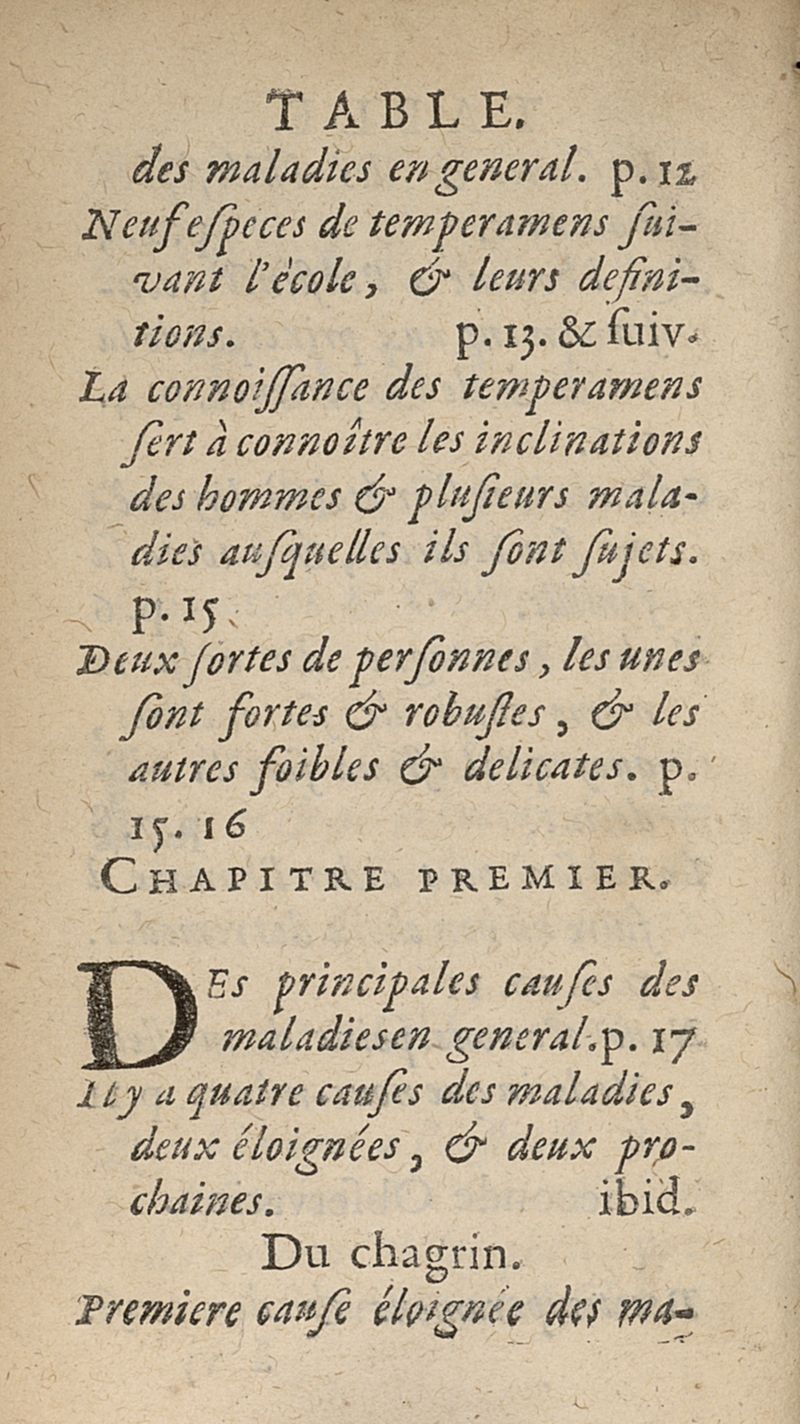 TABLE.
des maladies en general. p. 12
Neuf eſpeces de temperamens ſui-
vant l'ècole, & leurs defini-
tions. p. 13. & ſuiv.
La connoiſſance des temperamens
ſert à connoître les inclinations
des hommes & pluſieurs mala-
dies auſquelles ils ſont ſujets.
p. 15
Deux ſortes de perſonnes, les unes
ſont fortes & robuſtes, & les
autres foibles & delicates. p.
15. 16
CHAPITRE PREMIER.
DEs principales cauſes des
maladies en general. p. 17
Il y a quatre cauſes des maladies,
deux éloignées, & deux pro-
chaines. ibid.
Du chagrin.
Premiere cauſe éloignée des ma-